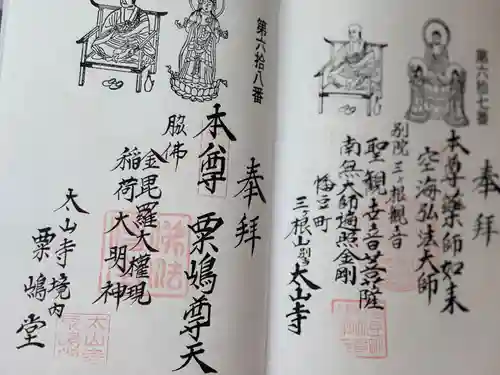 第六拾七番
奉拝
本尊藥師如来
空海弘法大師
別院三ヶ根観音
聖観世音菩薩
南無大師遍照金剛
幡豆町
三ヶ根山別院
太山寺
第六拾八番
奉拝
本尊 粟嶋尊天
脇佛
金毘羅大權現
稲荷大明神
太山寺境内
粟嶋堂